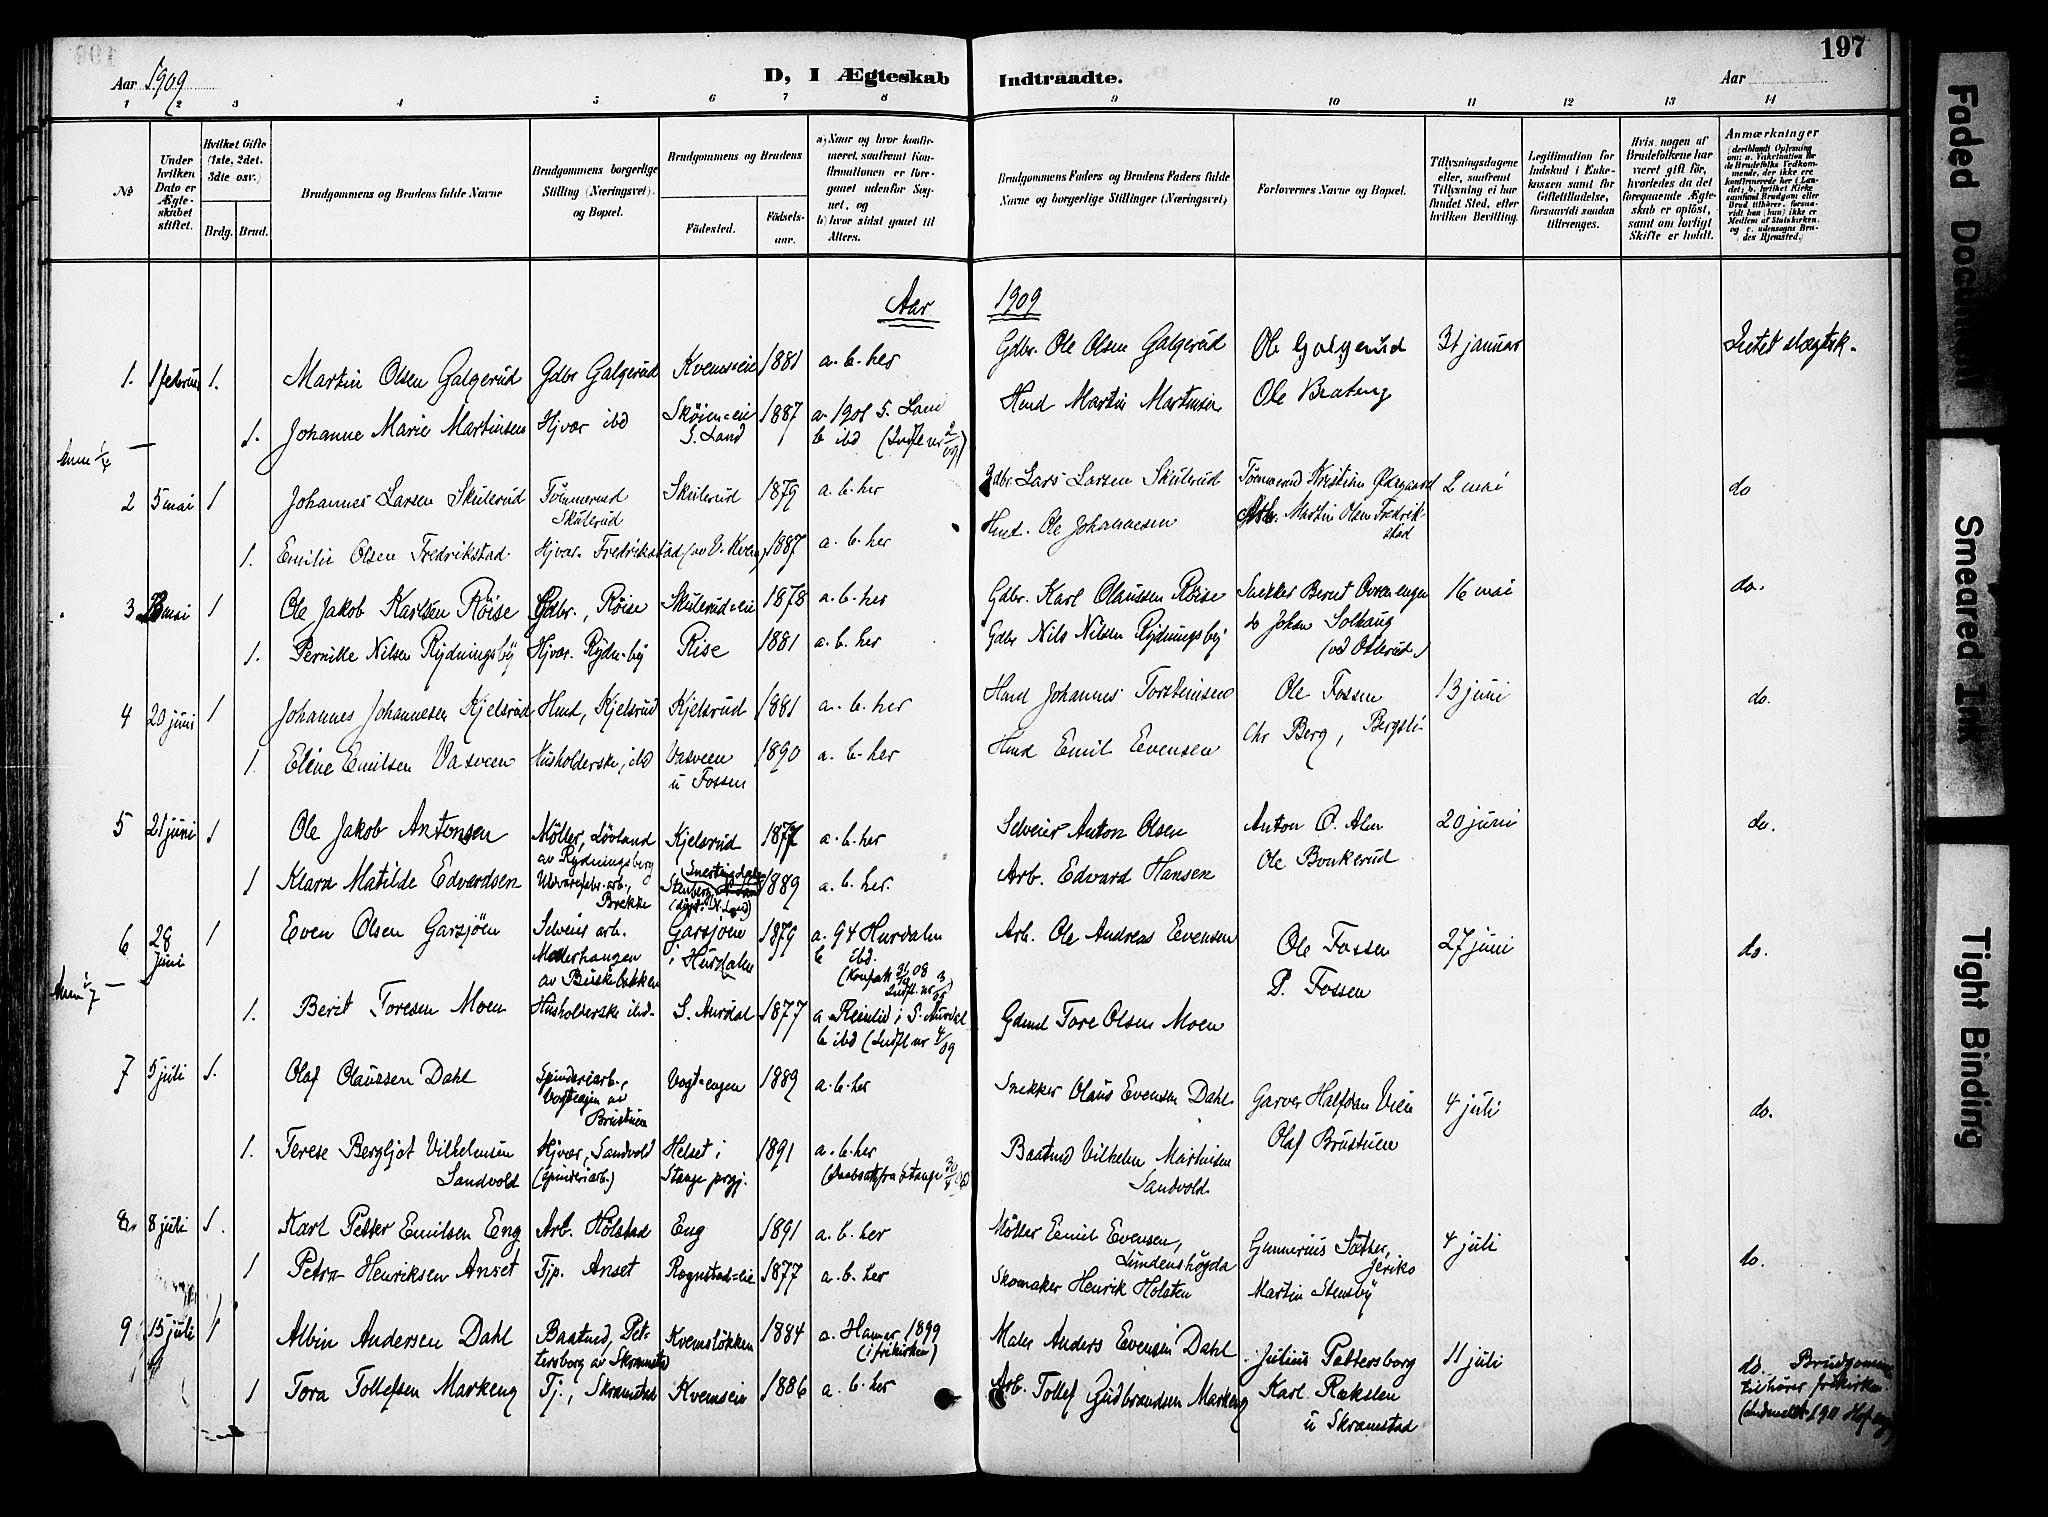 197
Aar 1909
D, I Ægteskab Indtraadte.
Aar
1 2 3 4 5 6 7 8 9 10 11 12 13 14
No
Under hvilken Dato er Ægteskabet stiftet.
Hvilket Gifte (1ste, 2det, 3die osv.)
Brdg. Brud.
Brudgommens og Brudens fulde Navne
Brudgommens borgerlige Stilling (Næringsvei) og Bopæl.
Brudgommens og Brudens
Födested.
Födselsaar.
a) Naar og hvor konfirmeret, saafremt Konfirmationen er foregaaet udenför Sognet, og
b) hvor sidst gaaet til Alters.
Brudgommens Faders og Brudens Faders fulde Navne og borgerlige Stillinger (Næringsvei)
Forlovernes Navne og Bopæl.
Tillysningsdagene eller, saafremt Tillysning ei har fundet Sted, efter hvilken Bevilling.
Legitimation for Indskud i Enkekassen samt for Giftetilladelse, forsaavidt saadan tiltrænges.
Hvis nogen af Brudefolkene har været gift för, hvorledes da det foregaaende Ægteskab er oplöst, samt om lovligt Skifte er holdt.
Anmærkninger
(deriblandt Oplysning om: a. Vakcination for de Brudefolks Vedkommende, der ikke ere konfirmerede her i Landet; b. hvilket Kirkesamfund Brudgom eller Brud tilhörer, forsaavidt han (hun) ikke er Medlem af Statskirken, og c. udensogns Brudes Hjemsted.)
Aar 1909
1. 1 februar 1. Martin Olsen Galgerud Gdbr Galgerud Kvems=eie 1881 a. b. her Gdbr. Ole Olsen Galgerud Ole Galgerud 31 januar Intet slægtsk.
1. Johanne Marie Martinsen Hjvær ibd Skøien=eie S. Land 1887 a. 1901 S. Land b ibd (Indfl. nr 2/09) Hmd Martin Martinsen Ole Brateng
2 5 mai 1 Johannes Larsen Skulerud Tömmermd Skulerud Skulerud 1879 a. b. her Gdbr. Lars Larsen Skulerud Tömmermd Kristian Ødegaard 2 mai do
1. Emilie Olsen Fredrikstad Hjvær. Fredrikstad (av V. Kvem) 1887 a. b. her Hmd. Ole Johannesen Arb. Martin Olsen Fredrikstad
3 mai 1 Ole Jakob Karlsen Röise Gdbr., Röise Skulerud=eie 1878 a. b. her Gdbr. Karl Olaussen Röise Snekker Bernt Overnengen 16 mai do.
1. Pernille Nilsen Rydningsby Hjvær. Rydn-by Rise 1881 a. b. her Gdbr Nils Nilsen Rydningsby do Johan Solhaug (ved Osterud.)
4 20 juni 1 Johannes Johannesen Kjelsrud Hmd, Kjelsrud Kjelsrud 1881 a. b. her Hmd Johannes Torstensen Ole Fossen 13 juni do.
1. Eline Emilsen Vasveen Husholderske, ibd Vasveen u Fossen 1890 a. b. her Hmd Emil Evensen Chr Berg, Bergsli
5 21 juni 1 Ole Jakob Antonsen Möller, Lövland av Rydningsberg Kjelsrud 1877 a. b. her Selveier Anton Olsen Anton O. Alm 20 juni do.
1 Klara Matilde Edvardsen Uldvarefabr. arb., Brekke Stenberg (Snertingdalen) (døpt i N. Land) 1889 a. b. her. Arb. Edvard Hansen Ole Bonkerud
6 28 juni 1 Even Olsen Garsjöen Selveier arb. av Buskebakken Garsjöen i Hurdalen 1879 a. 94 Hurdalen b ibd. Arb. Ole Andreas Evensen Ole Fossen 27 juni do.
P. Fossen
1. Berit Toresen Moen Husholderske ibd. S. Aurdal 1877 a Reinlid i S. Aurdal b ibd (Indfl nr 4/09 Gdmd Tore Olsen Moen
7 5 juli 1. Olaf Olaussen Dahl Spinderiarb., Vogtengen av Brustuen Vogt=engen 1889 a. b. her Snekker Olaus Evensen Dahl Garver Halfdan Vien 4 juli do.
1. Terese Bergljot Vilhelmsen Sandvold Hjvær, Sandvold (Spinderiarb.) Helset i Stange prgj. 1891 a. b. her Baatmd Vilhelm Martinsen Sandvold Olaf Brustuen
8 8 juli 1. Karl Petter Emilsen Eng Arb. Holstad Eng 1891 a. b. her Möller Emil Evensen, Lundenshögda Gunnerius Sæther, Jeriko 4 juli do.
1 Petra Henriksen Anset Tjp. Anset Rognstad=eie 1877 a. b. her Skomaker Henrik Holsten Martin Stensby
9 15 juli 1 Albin Andersen Dahl Baatmd, Pettersborg av Skramstad Kvemsløkken 1884 a. Hamar 1899 (i frikirken) Maler Anders Evensen Dahl Julius Pettersborg 11 juli do. Brudgommen tilhører frikirken
1 Tora Tollefsen Markeng Tj., Skramstad Kvemseie 1886 a. b. her Arb. Tollef Gudbrandsen Markeng Karl Rækslen u Skramstad
Faded Document
Smeared Ink
Tight Binding